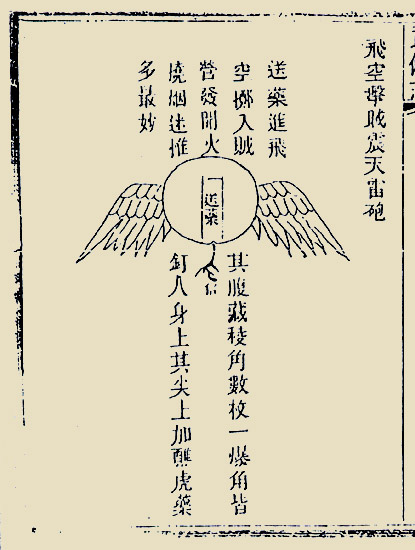 飛空擊賊震天雷砲
送藥進飛
空擲入賊
營發開火
燒烟迷推
多最妙
送藥
信
其腹藏稜角數枚一爆角皆
釘人身上其尖上加醮虎藥